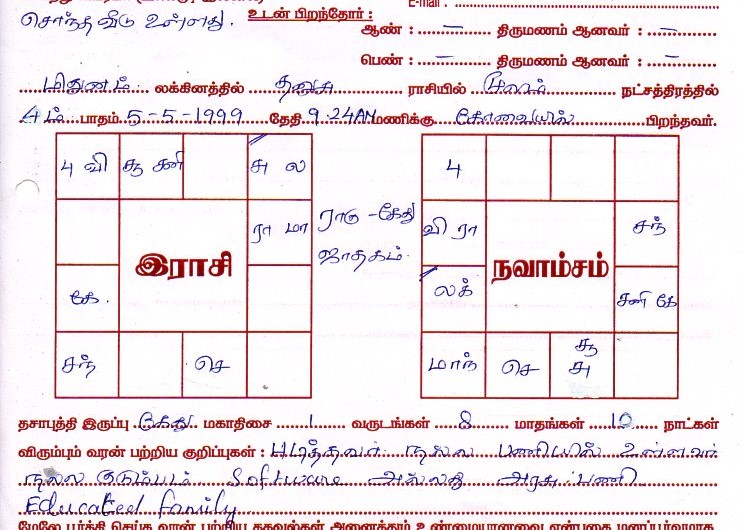 E-mail :
சொந்த வீடு உள்ளது. உடன் பிறந்தோர் :
ஆண் : – திருமணம் ஆனவர் : –
பெண் : – திருமணம் ஆனவர் : –
மிதுனம் லக்கினத்தில் தனுசு ராசியில் மூலம் நட்சத்திரத்தில்
4ம் பாதம் 5-5-1999 தேதி 9.24AM மணிக்கு கோவையில் பிறந்தவர்.
பு வி சூ சனி சு ல
ரா மா
இராசி
கே.
சந் செ
ராகு - கேது
ஜாதகம்.
பு
வி ரா சந்
நவாம்சம்
லக் சனி கே
மாந் செ சூ சு
தசாபுத்தி இருப்பு கேது மகாதிசை 1 வருடங்கள் 8 மாதங்கள் 10 நாட்கள்
விரும்பும் வரன் பற்றிய குறிப்புகள் : படித்தவர் நல்ல பணியில் உள்ளவர்
நல்ல குடும்பம் Software அல்லது அரசு பணி
Educated family
மேலே பூர்த்தி செய்த வரன் பற்றிய தகவல்கள் அனைத்தும் உண்மையானவை என்பதை மனப்பூர்வமாக